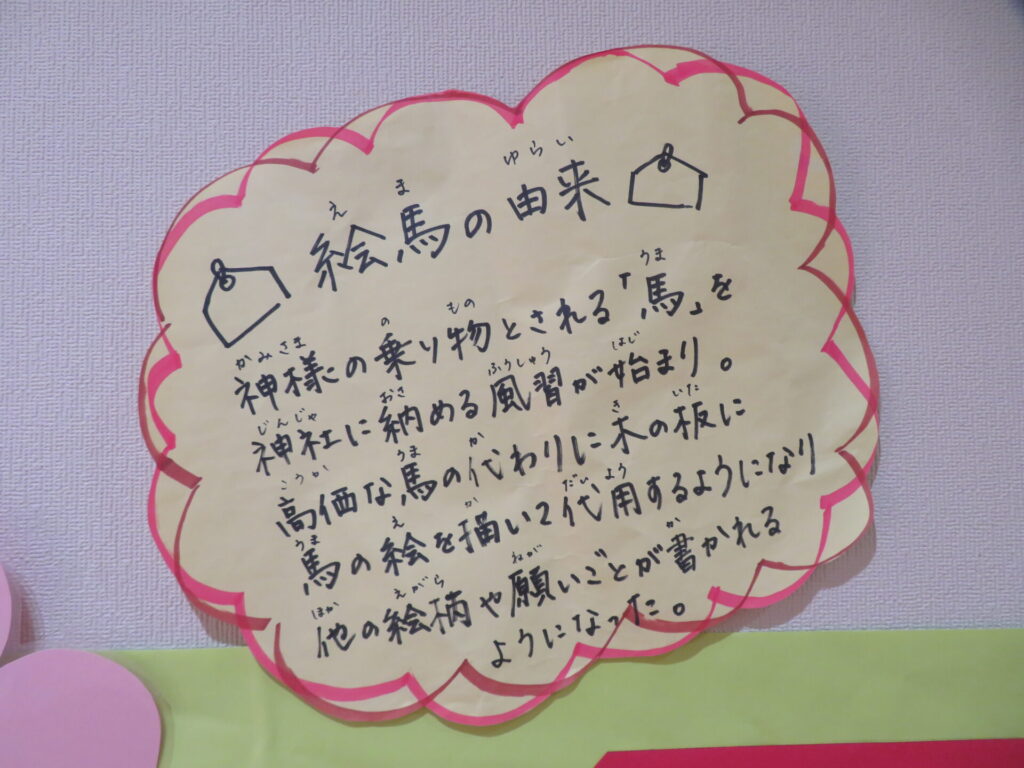 絵馬の由来
神様の乗り物とされる「馬」を
神社に納める風習が始まり。
高価な馬の代わりに木の板に
馬の絵を描いて代用するようになり
他の絵柄や願いごとが書かれる
ようになった。